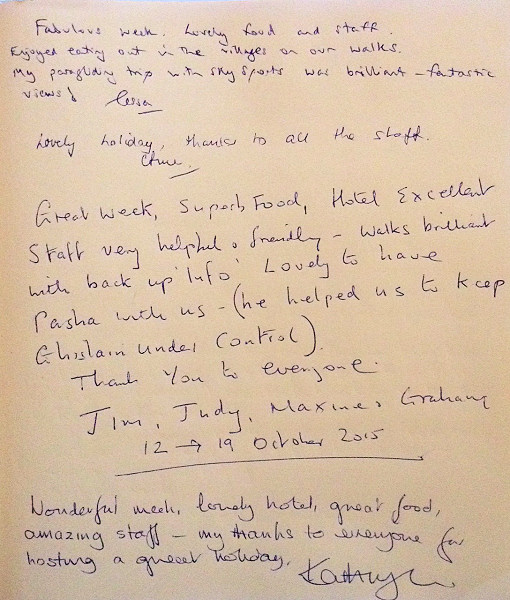 Fabulous week. Lovely food and staff.
Enjoyed eating out in the villages on our walks.
My paragliding trip with sky sports was brilliant - fantastic
views!
Lovely holiday, thanks to all the staff.
Great Week, Superb Food, Hotel Excellent
Staff very helpful & friendly - Walks brilliant
with back up 'Info' Lovely to have
Pasha with us - (he helped us to keep
Ghislain under control).
Thank You to everyone.
Jim, Judy, Maxine & Graham
12 → 19 October 2015
Wonderful week, lovely hotel, great food,
amazing staff - my thanks to everyone for
hosting a great holiday. Kathryn